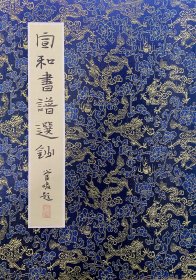 宣和書譜選鈔